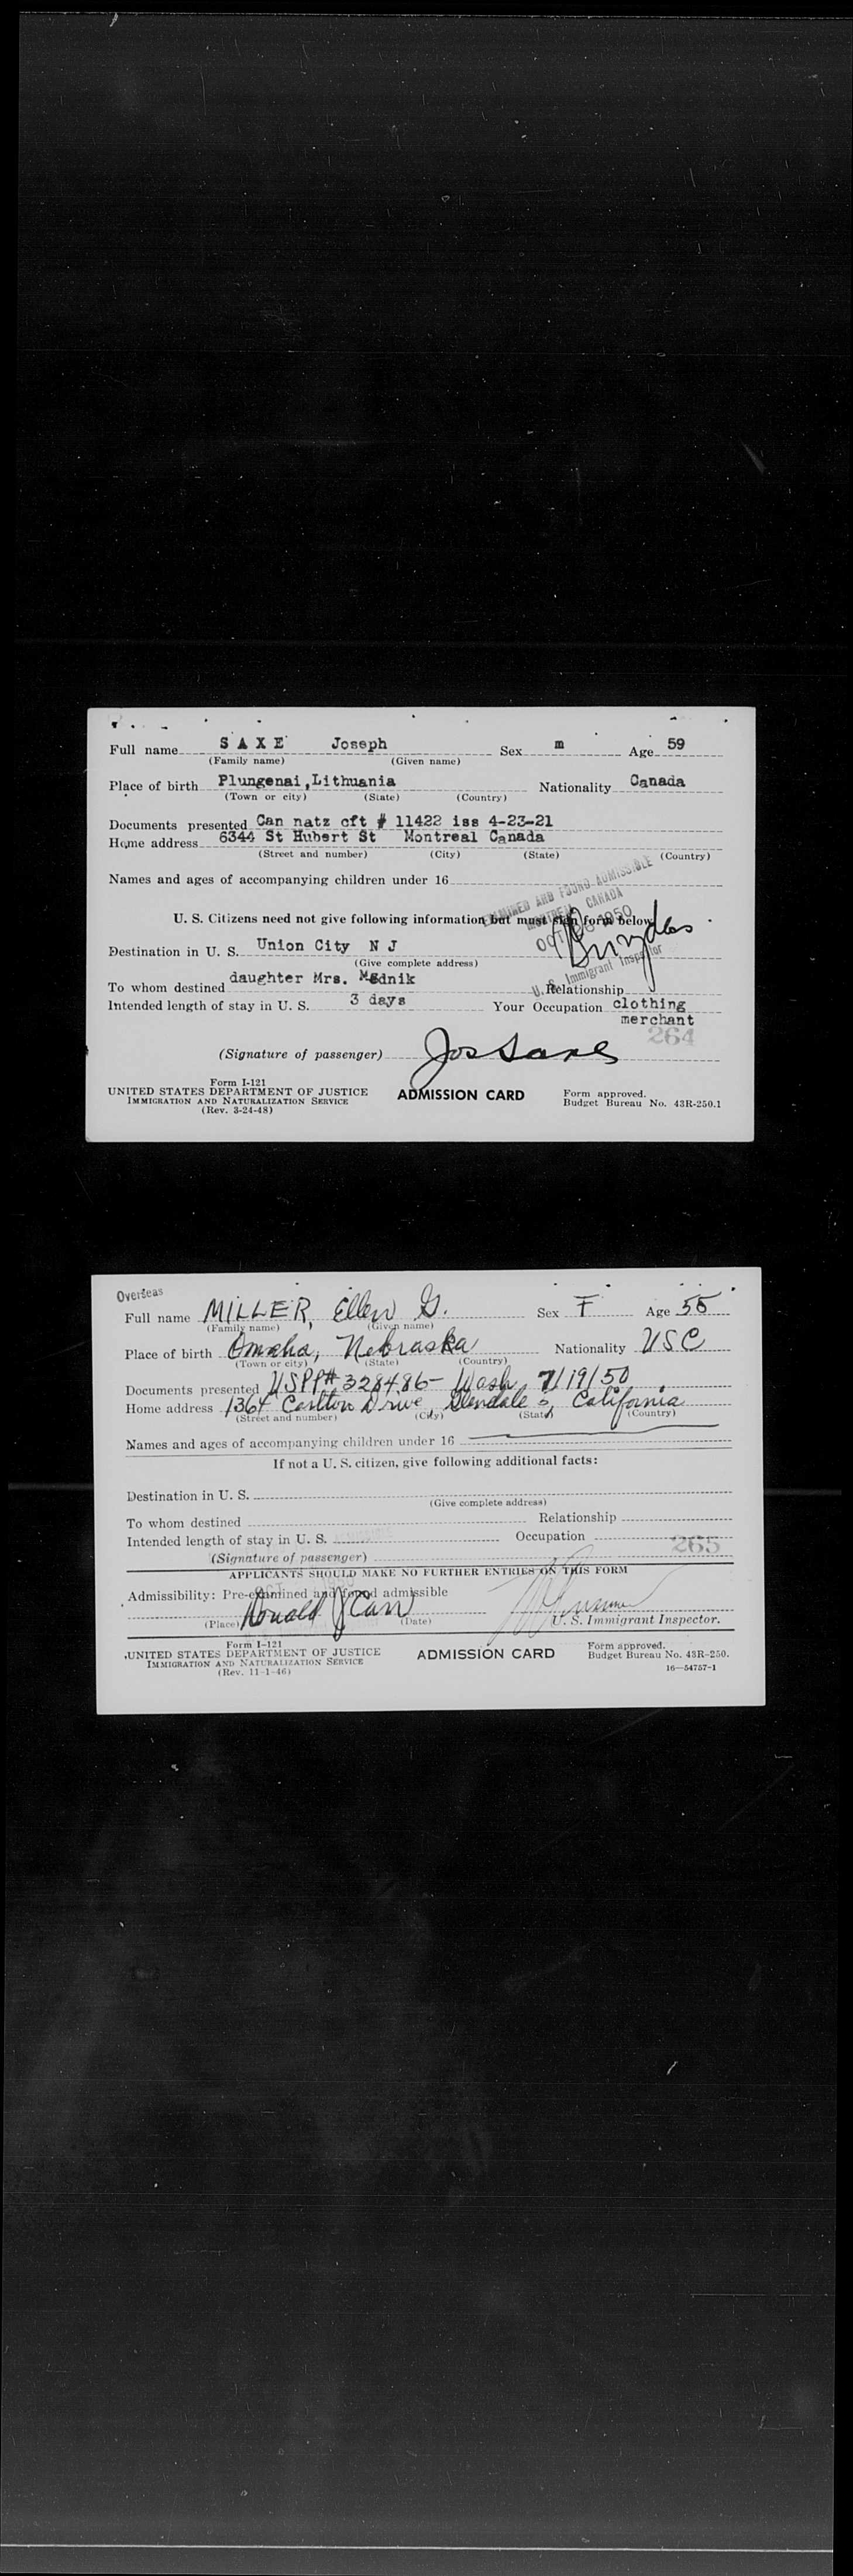 Full name S A X E Joseph Sex m Age 59
(Family name) (Given name)
Place of birth Plungenai, Lithuania Nationality Canada
(Town or city) (State) (Country)
Documents presented Can natz cft # 11422 iss 4-23-21
Home address 6344 St Hubert St Montreal Canada
(Street and number) (City) (State) (Country)
Names and ages of accompanying children under 16
EXAMINED AND FOUND ADMISSIBLE
MONTREAL CANADA
U. S. Citizens need not give following information but must sign form below
OCT 1950
Destination in U. S. Union City N J
(Give complete address)
U. S. Immigrant Inspector
To whom destined daughter Mrs. Mednik Relationship
Intended length of stay in U. S. 3 days Your Occupation clothing
merchant
264
(Signature of passenger) Jos Saxe
Form I-121
UNITED STATES DEPARTMENT OF JUSTICE ADMISSION CARD Form approved.
IMMIGRATION AND NATURALIZATION SERVICE Budget Bureau No. 43R-250.1
(Rev. 3-24-48)
Overseas
Full name MILLER, Ellen G. Sex F Age 55
(Family name) (Given name)
Place of birth Omaha, Nebraska Nationality USC
(Town or city) (State) (Country)
Documents presented USPP# 328486- Wash, 7/19/50
Home address 1364 Carlton Drive, Glendale 5, California
(Street and number) (City) (State) (Country)
Names and ages of accompanying children under 16
If not a U. S. citizen, give following additional facts:
Destination in U. S.
(Give complete address)
To whom destined Relationship
Intended length of stay in U. S. Occupation
265
(Signature of passenger)
APPLICANTS SHOULD MAKE NO FURTHER ENTRIES ON THIS FORM
Admissibility: Pre-examined and found admissible
Donald J Carr
(Place) (Date) U. S. Immigrant Inspector.
Form I-121
UNITED STATES DEPARTMENT OF JUSTICE ADMISSION CARD Form approved.
IMMIGRATION AND NATURALIZATION SERVICE Budget Bureau No. 43R-250.
(Rev. 11-1-46) 16—54757-1